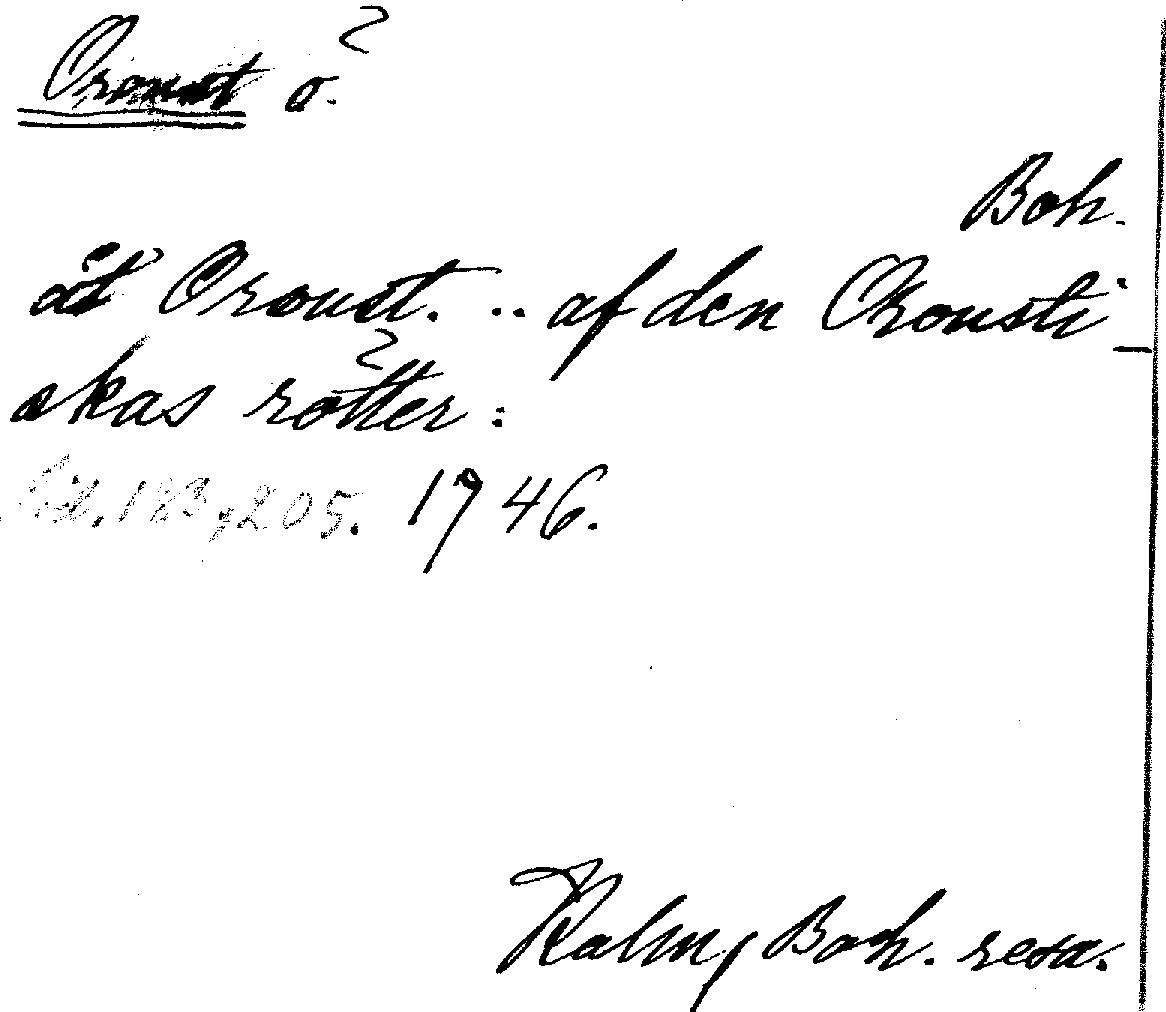 Oroust ö.
Boh.
åt Oroust. .. af den Orousti-
skas rötter:
Sid. 183, 205. 1746.
Kalm, Boh. resa.